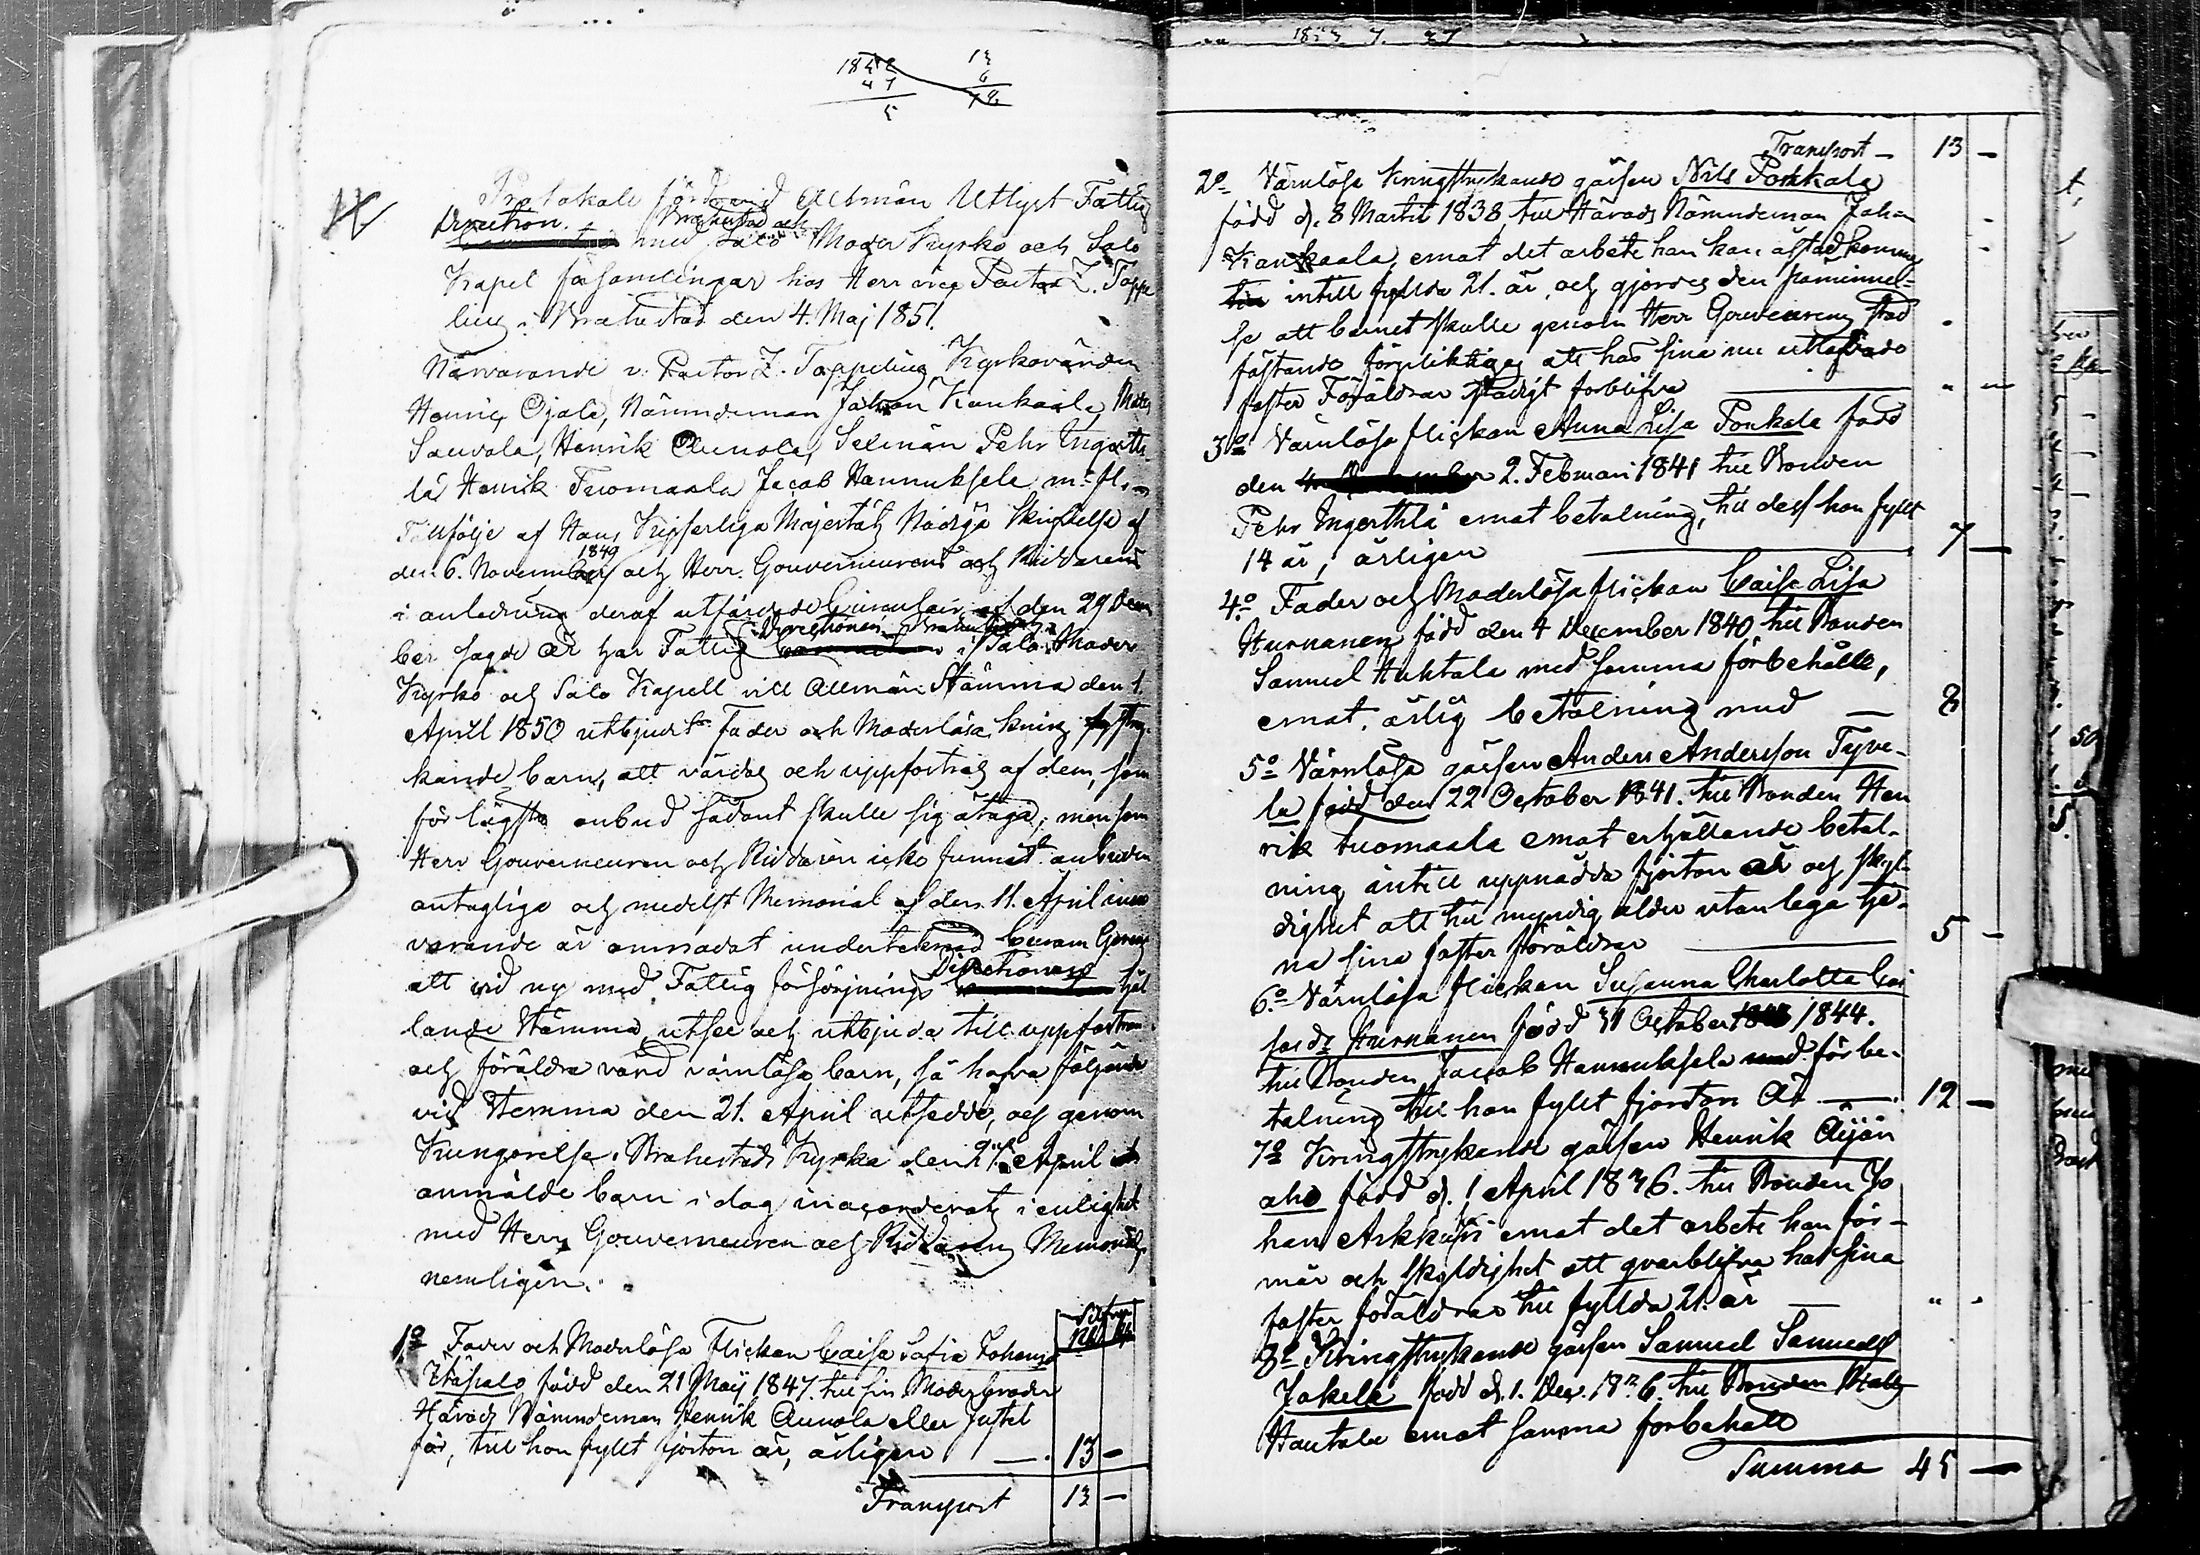 1852
47
5
13
6
78
Protokoll fördt vid Allmän Utlyst Fattig
Direction. Brahestad och
med Salo Moder Kyrko och Salo
Kapel församlingar hos Herr vice Pastor Z. Toppe
lius i Brahestad den 4. Maj 1851.
Närvarande v. Pastor Z. Toppelius Kyrkovärden
Henric Ojala, Nämndeman Johan Kankaala, Matts
Sauvola, Henrik Aunola, Sexmän Pehr Ingerthi
lä Henrik Tuomaala Jacob Hannuksela m. fl.
Till följe af Hans Kejserliga Majestäts Nådiga Skrifvelse af
den 6. November 1849 och Herr Gouverneurens och Riddarens
i anledning deraf utfärdade Circulair af den 29 Decem
ber sagde år har Fattig Directionen i Brahestad och Salo Moder
Kyrko och Salo Kapell vid Allmän Stämma den 1.
April 1850 utbjudit Fader och Moderlösa kring stry
kande barn, att vårdas och uppfostras af dem, som
för lägsta anbud sådant skulle sig åtaga; men som
Herr Gouverneuren och Riddaren icke funnit anbuden
antaglige och medelst Memorial af den 11. April inne
varande år anmodat undertecknad
att vid ny med Fattig försörjnings Directionen hål
lande Stämma utse och utbjuda till uppfostran
och föräldra vård värnlösa barn, så hafva följande
vid Stemma den 21. April utsedde, och genom
Kungörelse i Brahestads Kyrka den 27. April
anmälde barn i dag inackorderats i enlighet
med Herr Gouverneuren och Riddarens Memorial,
nemligen:
Silfver
Rbl. Kop
1º Fader och Moderlösa Flickan Caisa Sofia Johansd
Ytäsalo född den 21 Maij 1847. till sin Moderbroder
Härads Nämndeman Henrik Aunola eller Juntti
för, till hon fyllt fjorton år, årligen — 13 —
Transport 13 —
Transport — 13 —
2º Värnlösa Kringstrykande gåssen Nils Ponkala
född d. 8 Martii 1838, till Härads Nämndeman Johan
Kankaala, emot det arbete han kan åstadkomma
intill fyllda 21. år, och gjordes den påminnel-
se att barnet skulle genom Herr Gouverneurens stad
fästande förpliktigas att hos sina nu utlofvade
foster Föräldrar stadigt forblifva — " —
3º Värnlösa flickan Anna Lisa Ponkala född
den 2. Februari 1841 till Bonden
Pehr Ingerthilä emot betalning, till dess hon fyllt
14 år, årligen — 7 —
4º Fader och Moderlösa flickan Caisa Lisa
Hurnanen född den 4 December 1840, till Bonden
Samuel Huhtala med samma förbehåll,
emot årlig betalning med — 8
5º Värnlösa gåssen Anders Andersson Tyve-
la född den 22 October 1841. till Bonden Hen
rik Tuomaala emot erhållande betal-
ning intill uppnådda fjorton år och skyl-
dighet att till myndig ålder utan lega tje-
na sina foster föräldrar — 5 —
6º Värnlösa flickan Susanna Charlotta Cai
sasdr Hurnanen född 31 October 1844.
till Bonden Jacob Hannuksela med förbe-
talning till hon fyllt fjorton År — 12 —
7º Kringstrykande gåssen Henrik Äijön
aho född d. 1 April 1836. till Bonden Jo
han Arkkusi emot det arbete han för-
mår och skyldighet att qvarblifva hos sina
foster föräldrar till fyllda 21. år — " "
8º Kringstrykande gåssen Samuel Samuelss
Jokela född d. 1. Dec. 1836. till Bonden Matts
Hautala emot samma forbehåll
Summa 45 —